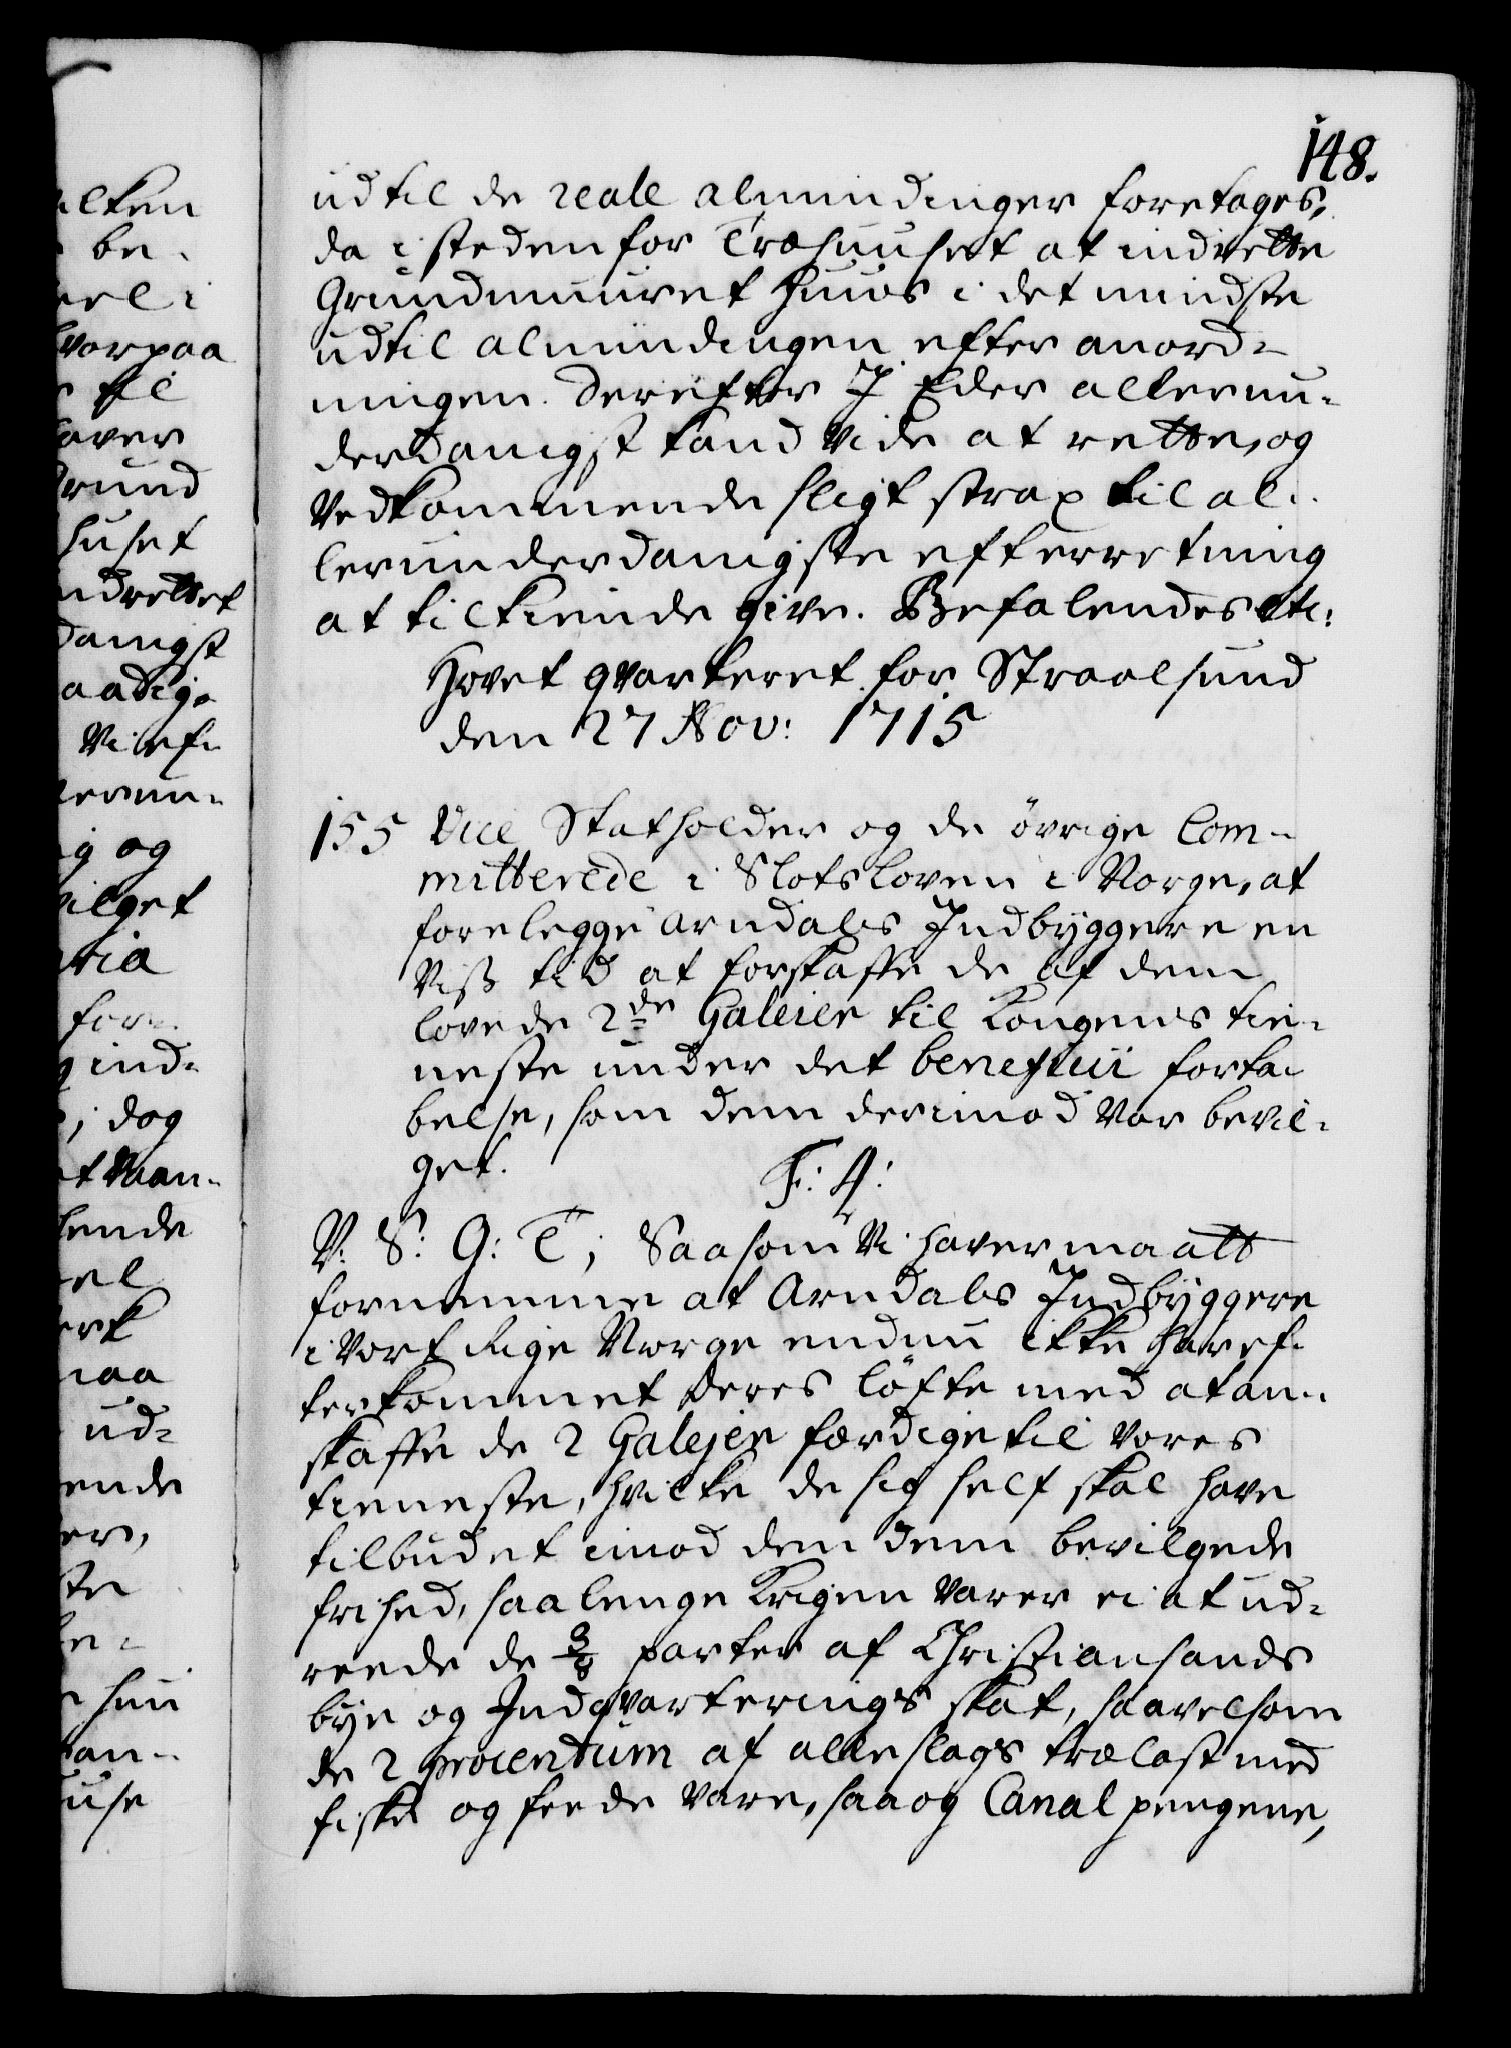 148.
udtil de reale almindinger foretages,
da i steden for Træhuuset at indrette
Grundmuuret Huus i det mindste
udtil almindingen efter anord-
ningen. Derefter I Eder allerun-
derdanigst kand vide at rette, og
Vedkommende sligt strax til al-
lerunderdanigste efterretning
at tilkiende give. Befalendes etc:
Hovet qvarteret for Straalsund
den 27 Nov: 1715
155 Vice Statholder og de övrige Com-
mitterede i Slotsloven i Norge, at
forelegge Arndahls Indbyggere en
Viss tid at forskaffe de af dem
lovede 2de Galeier til Kongens tie-
neste under det beneficii forta-
belse, som dem derimod var bevil-
get.
F: 4:
V: S: G: T; Saasom Vi haver maatt
fornemme at Arndahls Indbyggere
i Vort Rige Norge endnu ikke har ef-
terkommet deres löfte med at an-
skaffe de 2 Galejer færdige til vores
tieneste, hvilke de sig self skal have
tilbudet imod den dem bevilgede
frihed, saalenge Krigen varer ei at ud-
reede de 3/8 parter af Christiansands
bye og Indqvarterings skat, saavelsom
de 2 procentum af alle slags trælast med
fiske og feede vare, saa og Canal pengene,
ilken
be-
eel i
hvorpaa
til
haver
Grund
huset
indrettet
danigst
naadig-
Vi ef-
lerun-
ig og
vilget
for-
ind-
; dog
lende
el
erk
maa
ud-
ende
er,
ste
hun
an-
use